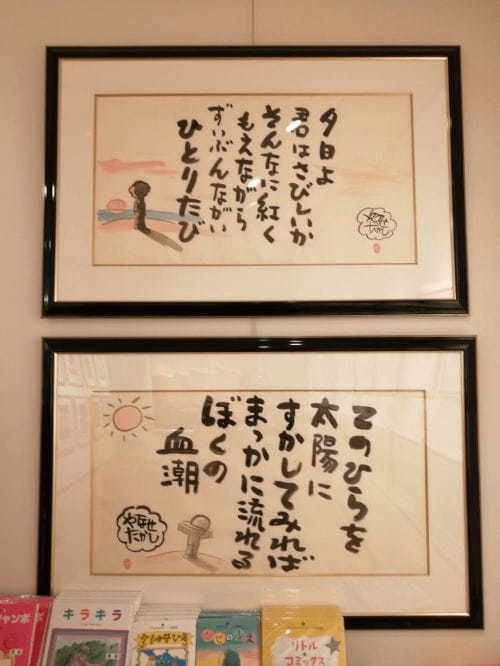 夕日よ
君はさびしいか
そんなに紅く
もえながら
ずいぶんながい
ひとりたび
やなせ
たかし
てのひらを
太陽に
すかしてみれば
まっかに流れる
ぼくの
血潮
やなせ
たかし
キラキラ
リトル
コミックス